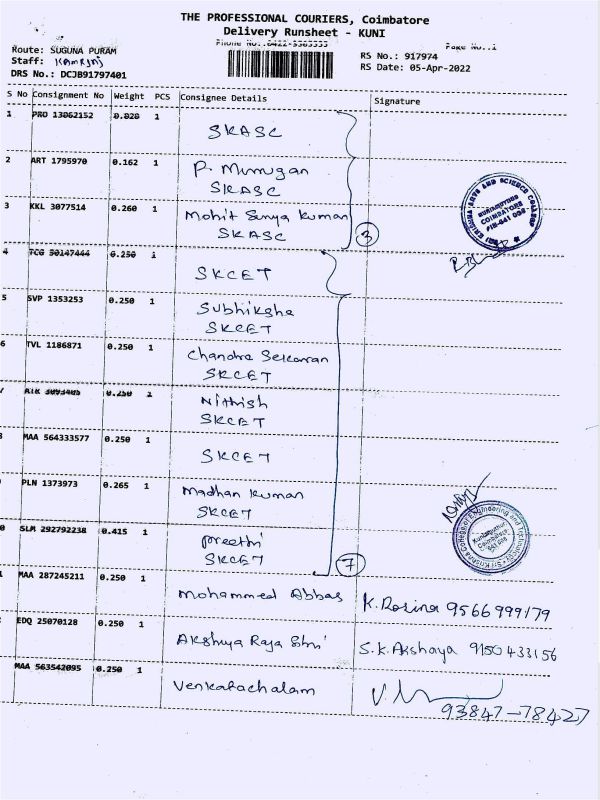 THE PROFESSIONAL COURIERS, Coimbatore
Delivery Runsheet - KUNI
Phone No.:0422-
Page No.:1
Route: SUGUNA PURAM
Staff:
DRS No.: DCJB91797401
RS No.: 917974
RS Date: 05-Apr-2022
S No Consignment No Weight PCS Consignee Details Signature
1 PRO 13062152 0.020 1 SKASC
2 ART 1795970 0.162 1 P. Murugan
SKASC
3 KKL 3077514 0.260 1 Mohit Surya Kuman
SKASC
3
SRI KRISHNA ARTS AND SCIENCE COLLEGE
KUNIAMUTHUR
COIMBATORE
PIN-641 008
4 TCG 50147444 0.250 1 SKCET
5 SVP 1353253 0.250 1 Subhiksha
SKCET
6 TVL 1186871 0.250 1 Chandra Sekaran
SKCET
7 0.250 1 Nithish
SKCET
MAA 564333577 0.250 1 SKCET
PLN 1373973 0.265 1 Madhan Kuman
SKCET
0 SLM 292792238 0.415 1 preethi
SKCET
7
Sri Krishna College of Engineering and Technology
Kuniamuthur
Coimbatore
641 008
1 MAA 287245211 0.250 1 Mohammed Abbas K. Rosina 9566999179
EDQ 25070128 0.250 1 Akshya Raja Shri S.K. Akshaya 9150433156
MAA 563542095 0.250 1 Venkatachalam
93847-78427